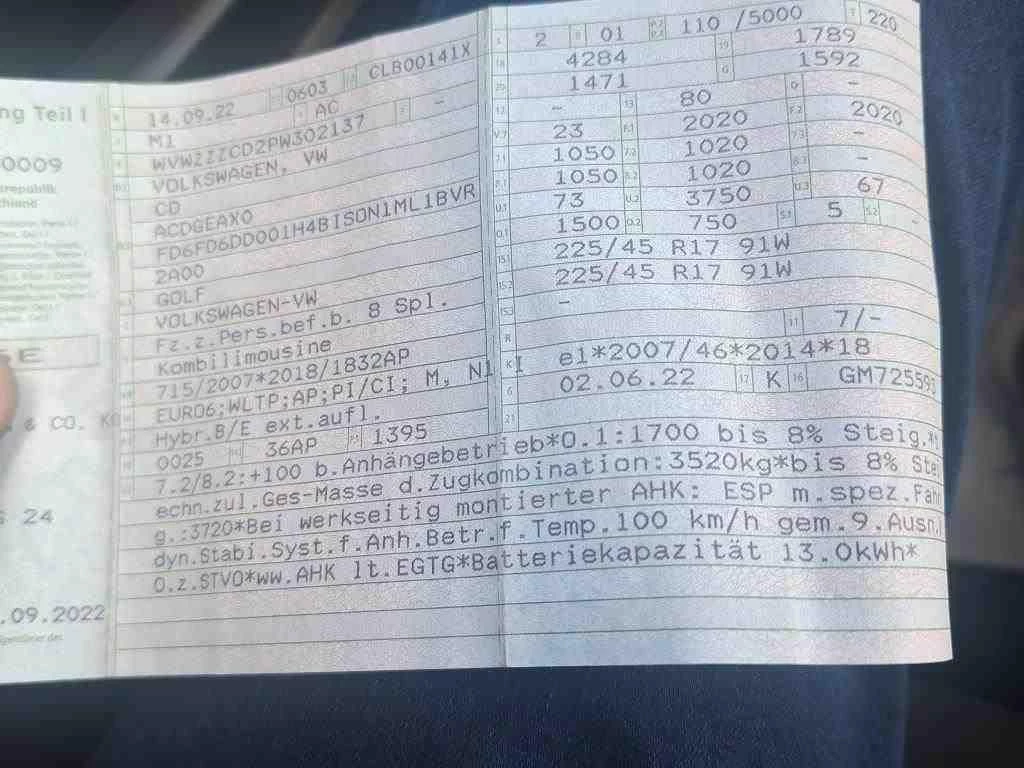 ng Teil I
0009
14.09.22 0603 CLB00141X
M1 AC -
WVWZZZCDZPW302137
VOLKSWAGEN, VW
CD
ACDGEAX0
FD6FD6DD001H4BISON1ML1BVR
2A00
GOLF
VOLKSWAGEN-VW
Fz.z.Pers.bef.b. 8 Spl.
Kombilimousine
715/2007*2018/1832AP
EURO6;WLTP;AP;PI/CI; M, N1 I
Hybr.B/E ext.aufl.
0025 36AP 1395
2 01 110 /5000 220
4284 1789
1471 1592
- 80 -
23 2020 2020
1050 1020 -
1050 1020 -
73 3750 67
1500 750 5 -
225/45 R17 91W
225/45 R17 91W
-
7/-
e1*2007/46*2014*18
02.06.22 K GM725593
7.2/8.2:+100 b.Anhängebetrieb*O.1:1700 bis 8% Steig.*
echn.zul.Ges-Masse d.Zugkombination:3520kg*bis 8% Stei
g.:3720*Bei werkseitig montierter AHK: ESP m.spez.Fah
dyn.Stabi.Syst.f.Anh.Betr.f.Temp.100 km/h gem.9.Ausn.
O.z.STVO*ww.AHK lt.EGTG*Batteriekapazität 13.0kWh*
E
& CO. K
24
.09.2022